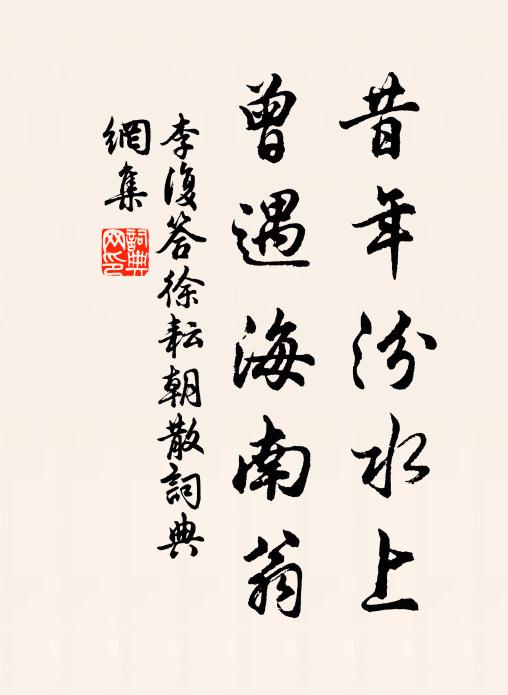 昔年汾水上
曾遇海南翁
李復答徐耘朝散詞典
網集
詞典
网印